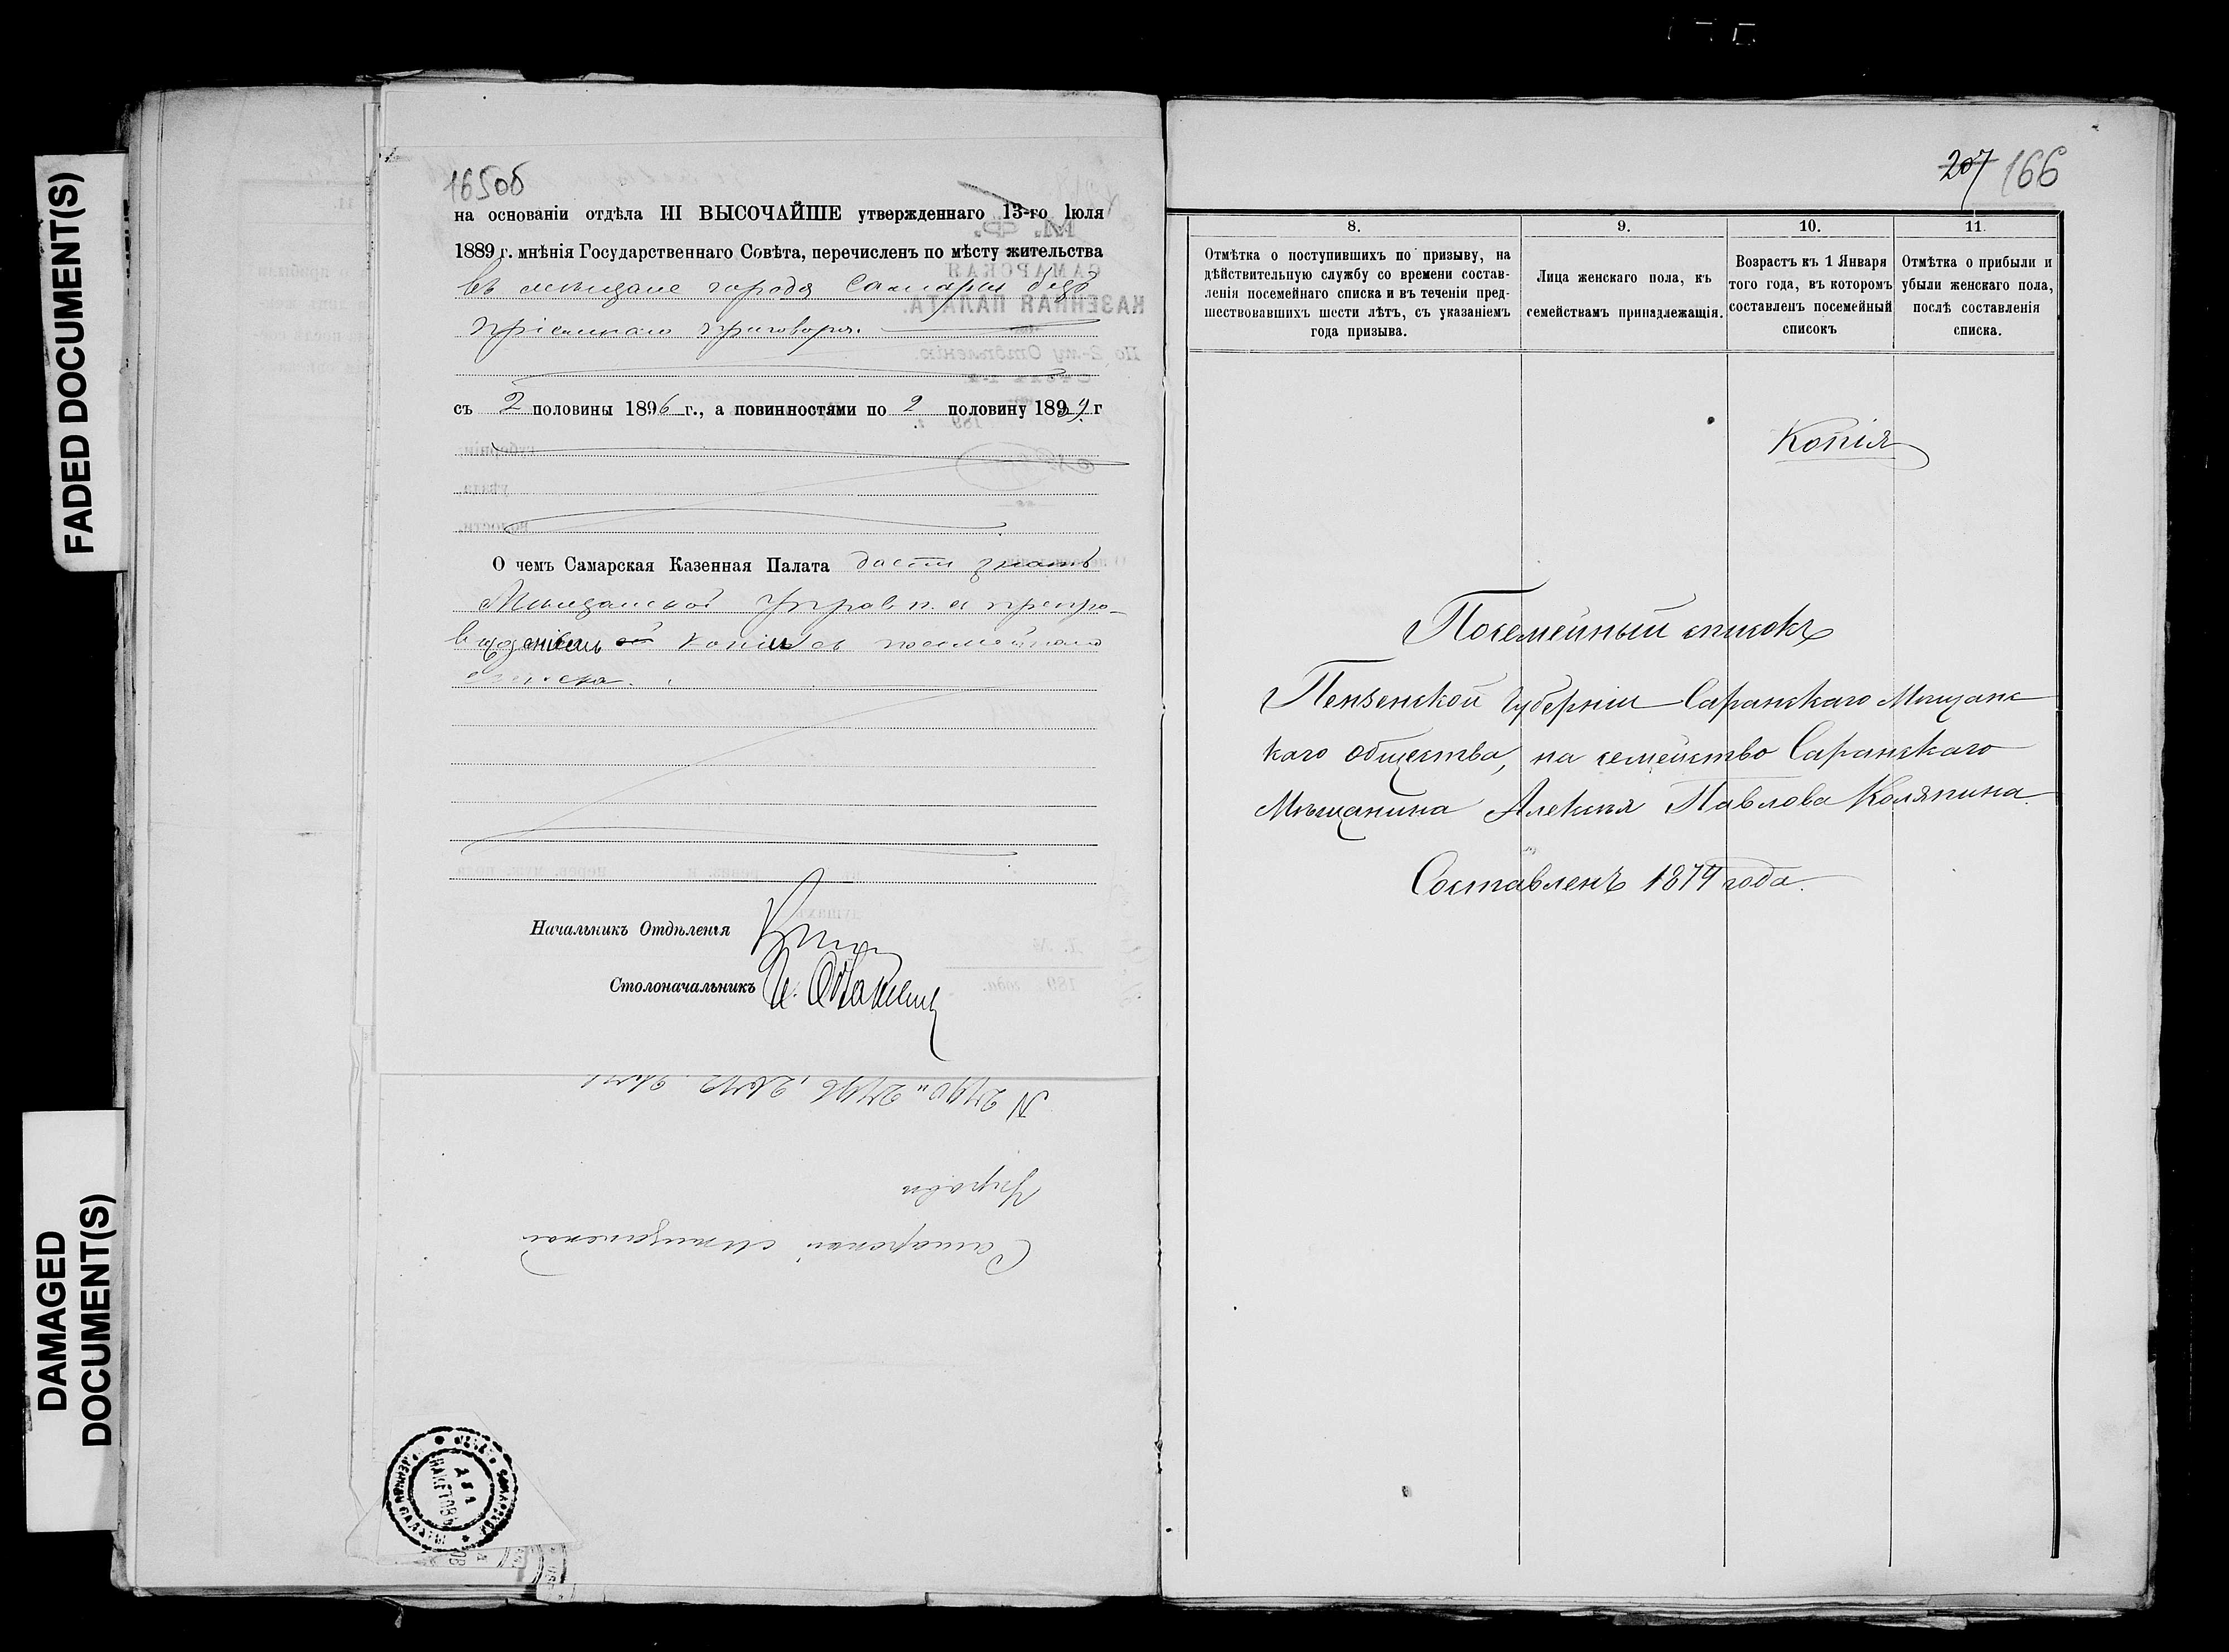 FADED DOCUMENT(S)
DAMAGED
DOCUMENT(S)
165об
на основаніи отдѣла III ВЫСОЧАЙШЕ утвержденнаго 13-го Іюля
1889 г. мнѣнія Государственнаго Совѣта, перечисленъ по мѣсту жительства
въ мѣщане города Самары безъ
пріемнаго приговора.
съ 2 половины 1896 г., а повинностями по 2 половину 189 г
О чемъ Самарская Казенная Палата даетъ знать
Мѣщанской Управѣ и препро-
вожденіемъ копіи съ посемейнаго
списка.
Начальникъ Отдѣленія
Столоначальникъ
Самарской Мѣщанской
Управѣ
207 166
8.
Отмѣтка о поступившихъ по призыву, на
дѣйствительную службу со времени состав-
ленія посемейнаго списка и въ теченіи пред-
шествовавшихъ шести лѣтъ, съ указаніемъ
года призыва.
9.
Лица женскаго пола, къ
семействамъ принадлежащія.
10.
Возрастъ къ 1 Января
того года, въ которомъ
составленъ посемейный
списокъ
11.
Отмѣтка о прибыли и
убыли женскаго пола,
послѣ составленія
списка.
Копія
Посемейный списокъ
Пензенской Губерніи Саранскаго Мѣщанс
каго общества, на семейство Саранскаго
Мѣщанина Алексѣя Павлова Коляпина.
Составленъ 1874 года.